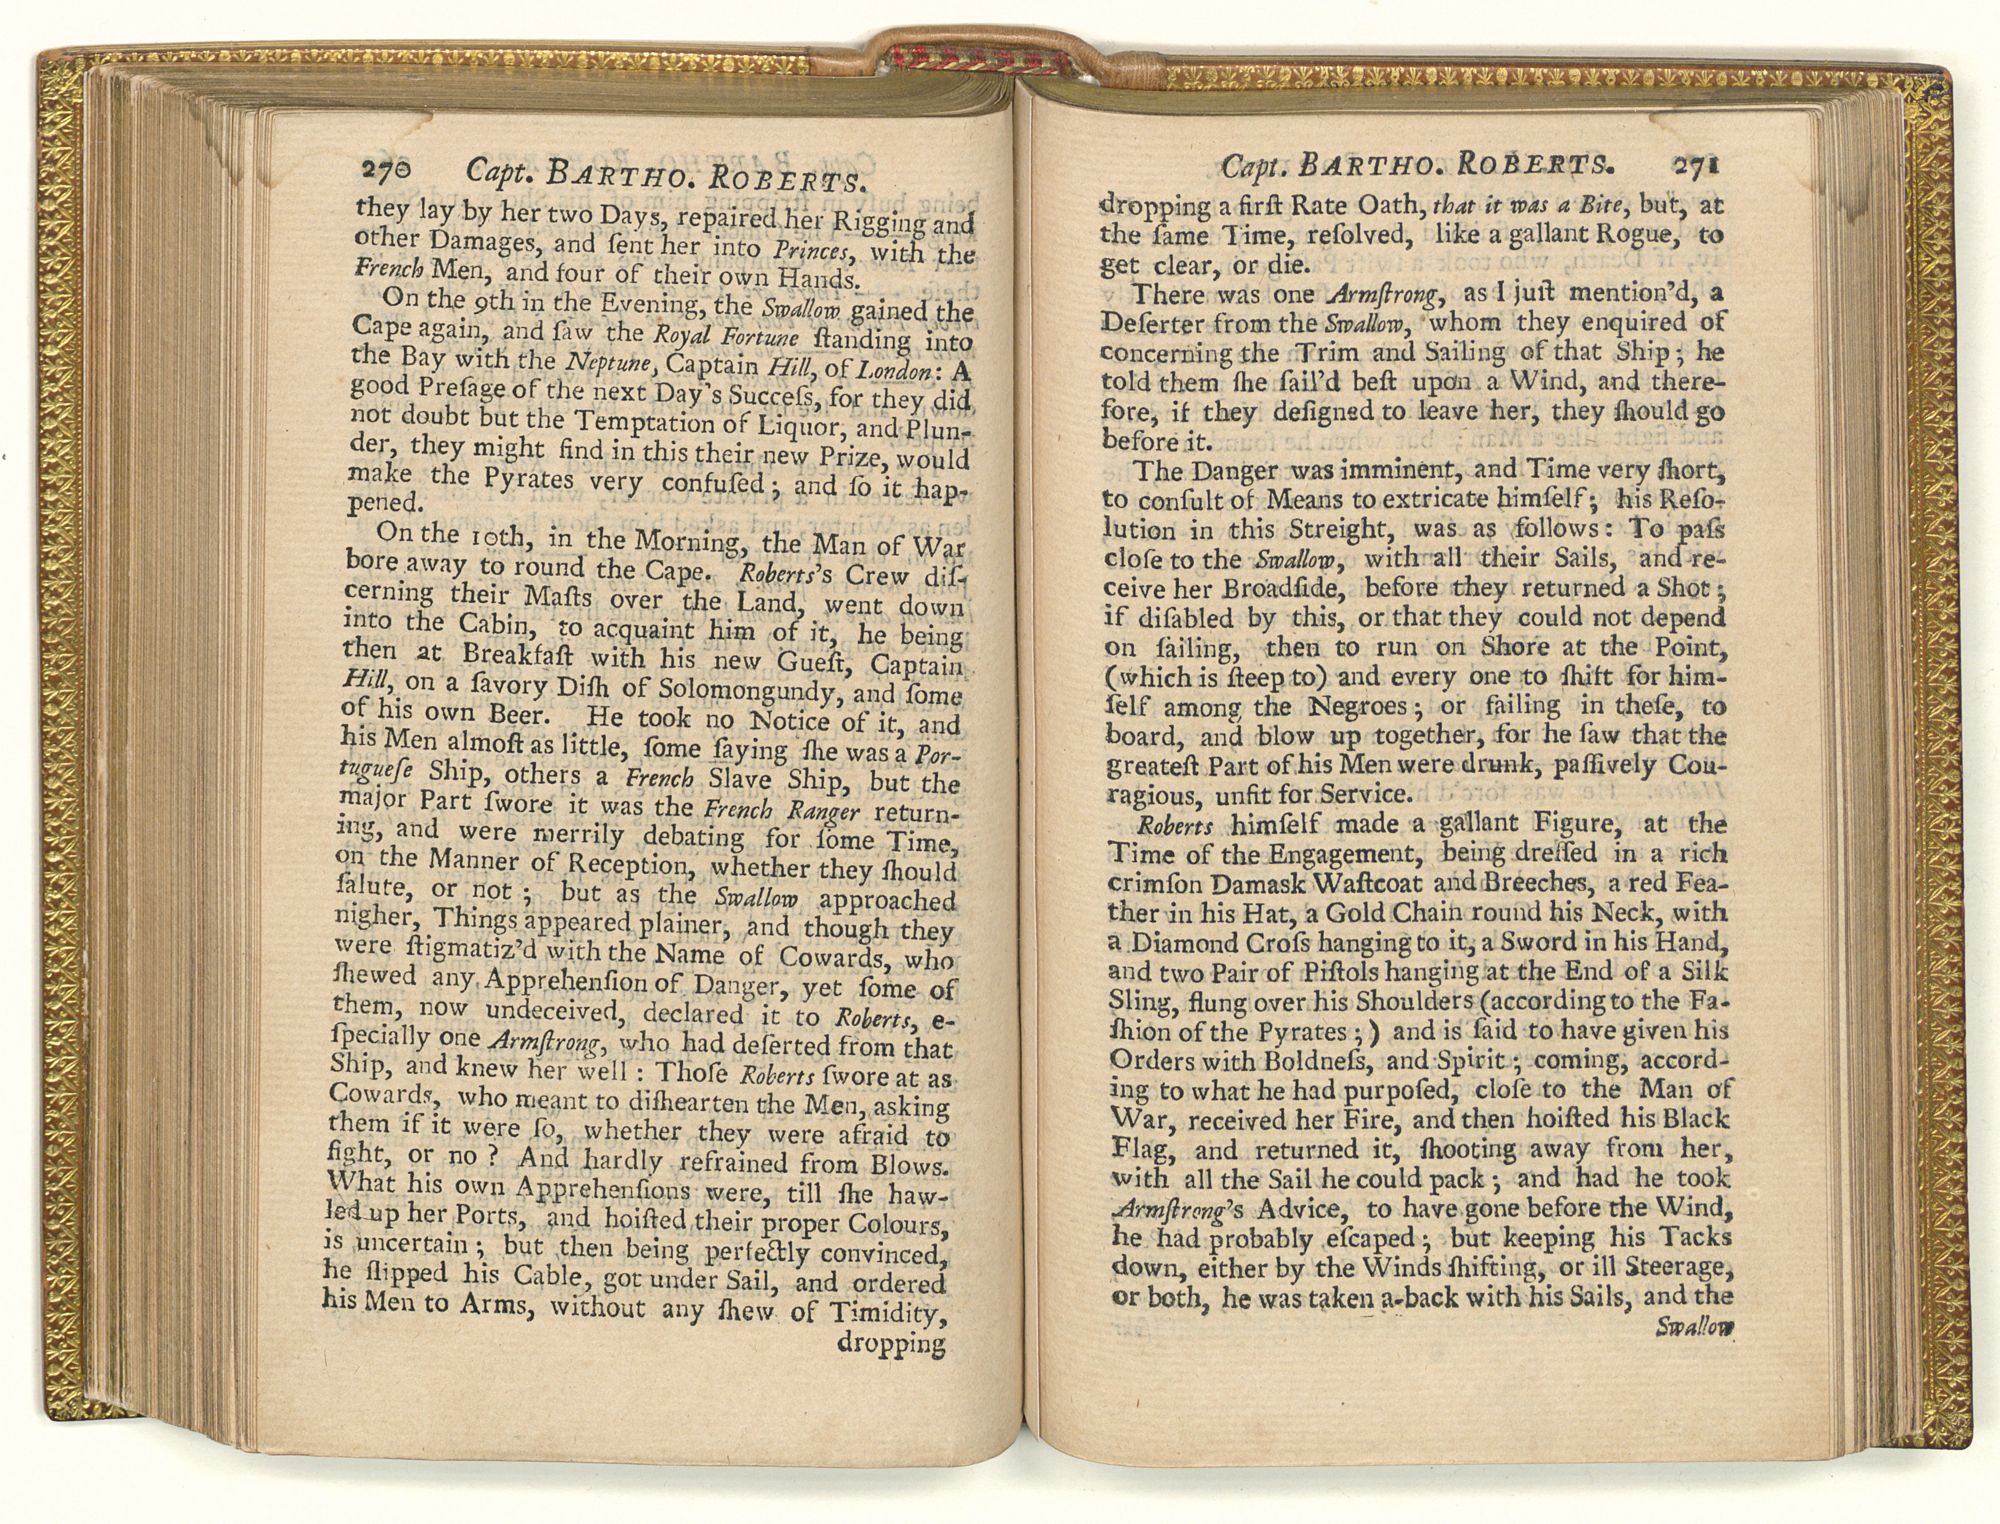 270 Capt. BARTHO. ROBERTS.
they lay by her two Days, repaired her Rigging and
other Damages, and ſent her into Princes, with the
French Men, and four of their own Hands.
On the 9th in the Evening, the Swallow gained the
Cape again, and ſaw the Royal Fortune ſtanding into
the Bay with the Neptune, Captain Hill, of London: A
good Preſage of the next Day's Succeſs, for they did
not doubt but the Temptation of Liquor, and Plun-
der, they might find in this their new Prize, would
make the Pyrates very confuſed; and ſo it hap-
pened.
On the 10th, in the Morning, the Man of War
bore away to round the Cape. Roberts's Crew diſ-
cerning their Maſts over the Land, went down
into the Cabin, to acquaint him of it, he being
then at Breakfaſt with his new Gueſt, Captain
Hill, on a ſavory Diſh of Solomongundy, and ſome
of his own Beer. He took no Notice of it, and
his Men almoſt as little, ſome ſaying ſhe was a Por-
tugueſe Ship, others a French Slave Ship, but the
major Part ſwore it was the French Ranger return-
ing, and were merrily debating for ſome Time,
on the Manner of Reception, whether they ſhould
ſalute, or not; but as the Swallow approached
nigher, Things appeared plainer, and though they
were ſtigmatiz'd with the Name of Cowards, who
ſhewed any Apprehenſion of Danger, yet ſome of
them, now undeceived, declared it to Roberts, e-
ſpecially one Armſtrong, who had deſerted from that
Ship, and knew her well: Thoſe Roberts ſwore at as
Cowards, who meant to diſhearten the Men, asking
them if it were ſo, whether they were afraid to
fight, or no? And hardly refrained from Blows.
What his own Apprehenſions were, till ſhe haw-
led up her Ports, and hoiſted their proper Colours,
is uncertain; but then being perfectly convinced,
he ſlipped his Cable, got under Sail, and ordered
his Men to Arms, without any ſhew of Timidity,
dropping
Capt. BARTHO. ROBERTS. 271
dropping a firſt Rate Oath, that it was a Bite, but, at
the ſame Time, reſolved, like a gallant Rogue, to
get clear, or die.
There was one Armſtrong, as I juſt mention'd, a
Deſerter from the Swallow, whom they enquired of
concerning the Trim and Sailing of that Ship; he
told them ſhe ſail'd beſt upon a Wind, and there-
fore, if they deſigned to leave her, they ſhould go
before it.
The Danger was imminent, and Time very ſhort,
to conſult of Means to extricate himſelf; his Reſo-
lution in this Streight, was as follows: To paſs
cloſe to the Swallow, with all their Sails, and re-
ceive her Broadſide, before they returned a Shot;
if diſabled by this, or that they could not depend
on ſailing, then to run on Shore at the Point,
(which is ſteep to) and every one to ſhift for him-
ſelf among the Negroes; or failing in theſe, to
board, and blow up together, for he ſaw that the
greateſt Part of his Men were drunk, paſſively Cou-
ragious, unfit for Service.
Roberts himſelf made a gallant Figure, at the
Time of the Engagement, being dreſſed in a rich
crimſon Damask Waſtcoat and Breeches, a red Fea-
ther in his Hat, a Gold Chain round his Neck, with
a Diamond Croſs hanging to it, a Sword in his Hand,
and two Pair of Piſtols hanging at the End of a Silk
Sling, flung over his Shoulders (according to the Fa-
ſhion of the Pyrates;) and is ſaid to have given his
Orders with Boldneſs, and Spirit; coming, accord-
ing to what he had purpoſed, cloſe to the Man of
War, received her Fire, and then hoiſted his Black
Flag, and returned it, ſhooting away from her,
with all the Sail he could pack; and had he took
Armſtrong's Advice, to have gone before the Wind,
he had probably eſcaped; but keeping his Tacks
down, either by the Winds ſhifting, or ill Steerage,
or both, he was taken a-back with his Sails, and the
Swallow